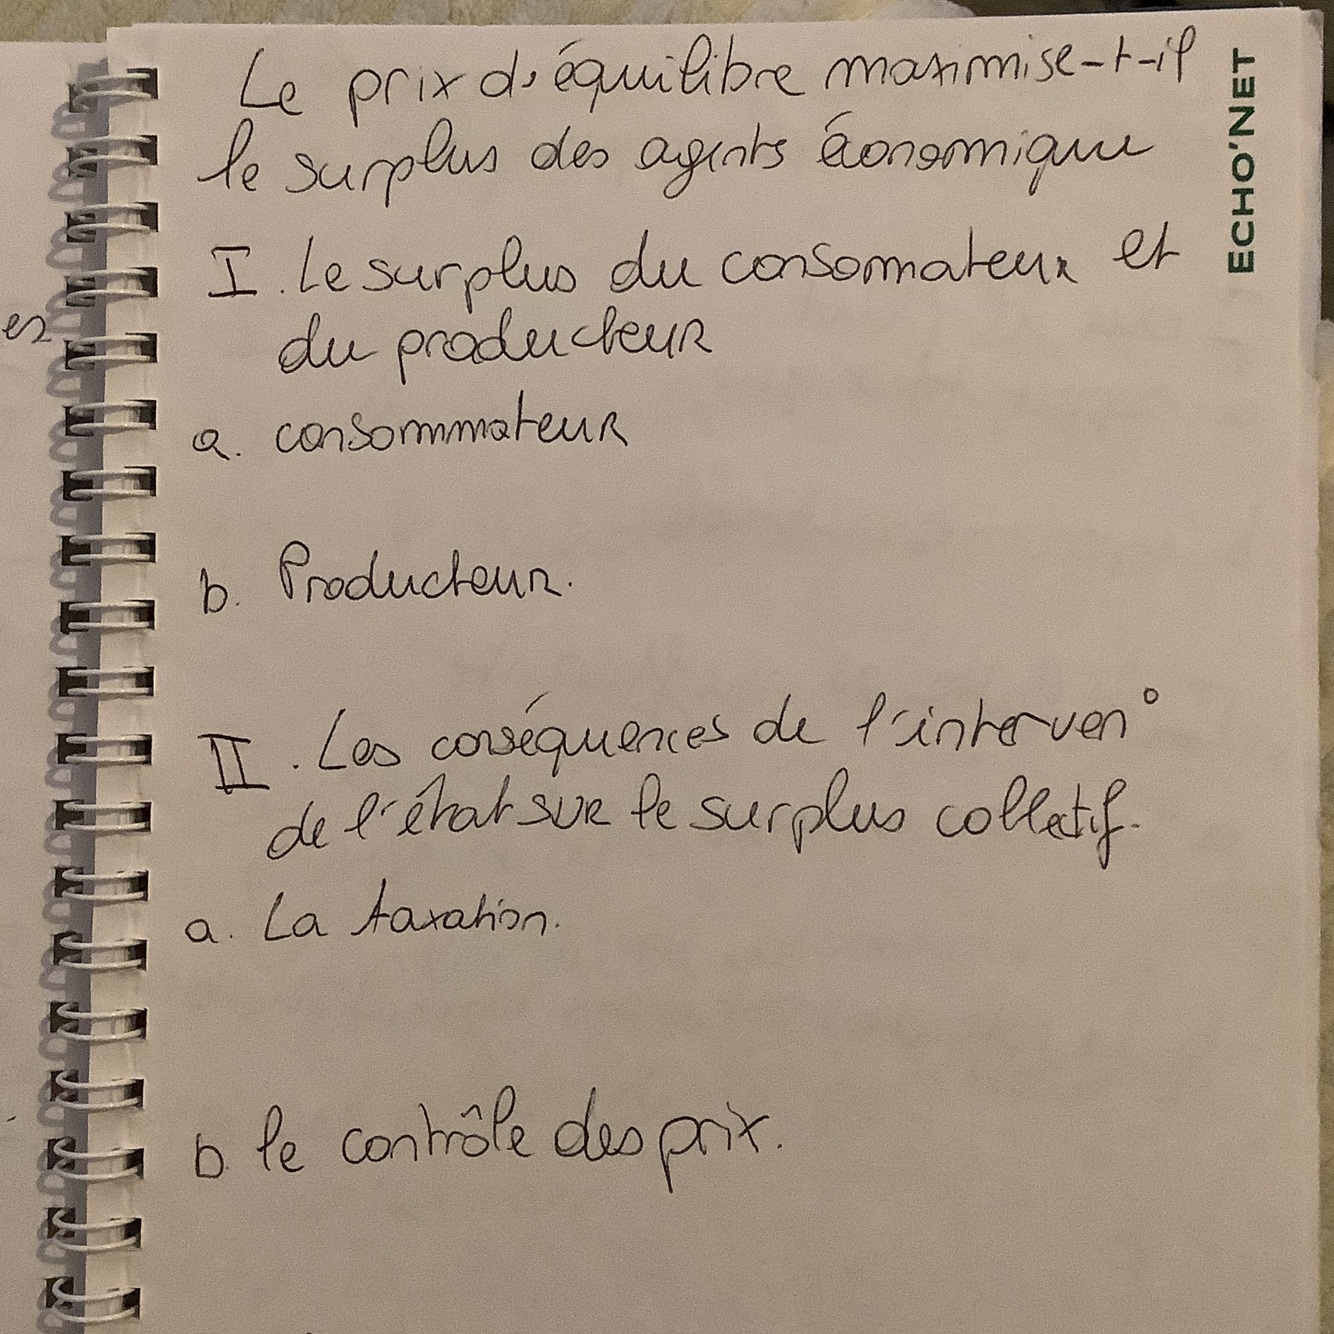 Le prix d'équilibre maximise-t-il
le surplus des agents économique
I. Le surplus du consommateur et
du producteur
a. consommmateur
b. Producteur.
II. Les conséquences de l'interven°
de l'état sur le surplus collectif.
a. La taxation.
b le contrôle des prix.
ECHO'NET
es